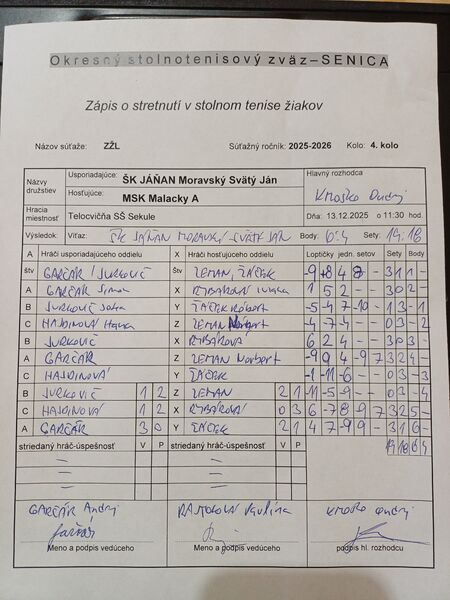 Okresný stolnotenisový zväz – SENICA
Zápis o stretnutí v stolnom tenise žiakov
Názov súťaže: ZŽL Súťažný ročník: 2025-2026 Kolo: 4. kolo
Názvy družstiev Usporiadajúce: ŠK JÁŇAN Moravský Svätý Ján Hlavný rozhodca
Hosťujúce: MSK Malacky A Kmoško Ondrej
Hracia miestnosť Telocvičňa SŠ Sekule Dňa: 13.12.2025 o 11:30 hod.
Výsledok: Víťaz: ŠK JÁŇAN MORAVSKÝ SVÄTÝ JÁN Body: 6:4 Sety: 19:18
A Hráči usporiadajúceho oddielu X Hráči hosťujúceho oddielu Loptičky jedn. setov Sety Body
štv GARČÁR / JURKOVIČ Štv ZEMAN, ŤÁČEK -9 +8 4 8 - 3 1 1 -
A GARČÁR Šimon X RYBÁROVÁ 1 5 2 - - 3 0 2 -
B JURKOVIČ Y ŤÁČEK Róbert -5 -4 7 -10 - 1 3 - 1
C HAJDINOVÁ Hana Z ZEMAN Norbert -4 -7 -4 - - 0 3 - 2
B JURKOVIČ X RYBÁROVÁ 6 2 4 - - 3 0 3 -
A GARČÁR Z ZEMAN Norbert -9 9 4 -9 7 3 2 4 -
C HAJDINOVÁ Y ŤÁČEK -1 -11 -6 - - 0 3 - 3
B JURKOVIČ 1 2 Z ZEMAN 2 1 -11 -5 -9 - - 0 3 - 4
C HAJDINOVÁ 1 2 X RYBÁROVÁ 0 3 6 -7 8 -9 7 3 2 5 -
A GARČÁR 3 0 Y ŤÁČEK 2 1 4 7 -9 9 - 3 1 6 -
striedaný hráč-úspešnosť V P striedaný hráč-úspešnosť V P 19 18 6 4
GARČÁR Andrej Kmoško Ondrej
Meno a podpis vedúceho Meno a podpis vedúceho podpis hl. rozhodcu